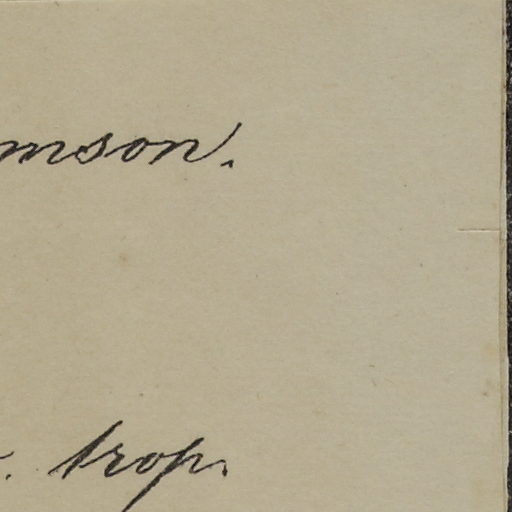 mson.
. trop.